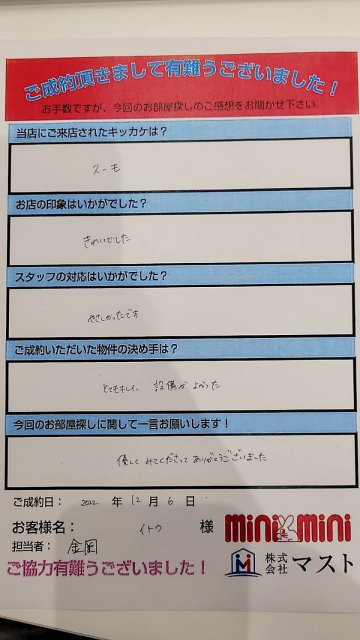 ご成約頂きまして有難うございました！
お手数ですが、今回のお部屋探しのご感想をお聞かせ下さい。
当店にご来店されたキッカケは？
スーモ
お店の印象はいかがでした？
きれいでした
スタッフの対応はいかがでした？
やさしかったです
ご成約いただいた物件の決め手は？
とてもキレイ、設備がよかった
今回のお部屋探しに関して一言お願いします！
優しくみてくださってありがとうございました
ご成約日： 2022 年 12 月 6 日
お客様名： イトウ 様
mini mini
担当者： 金岡
株式会社 マスト
ご協力有難うございました！